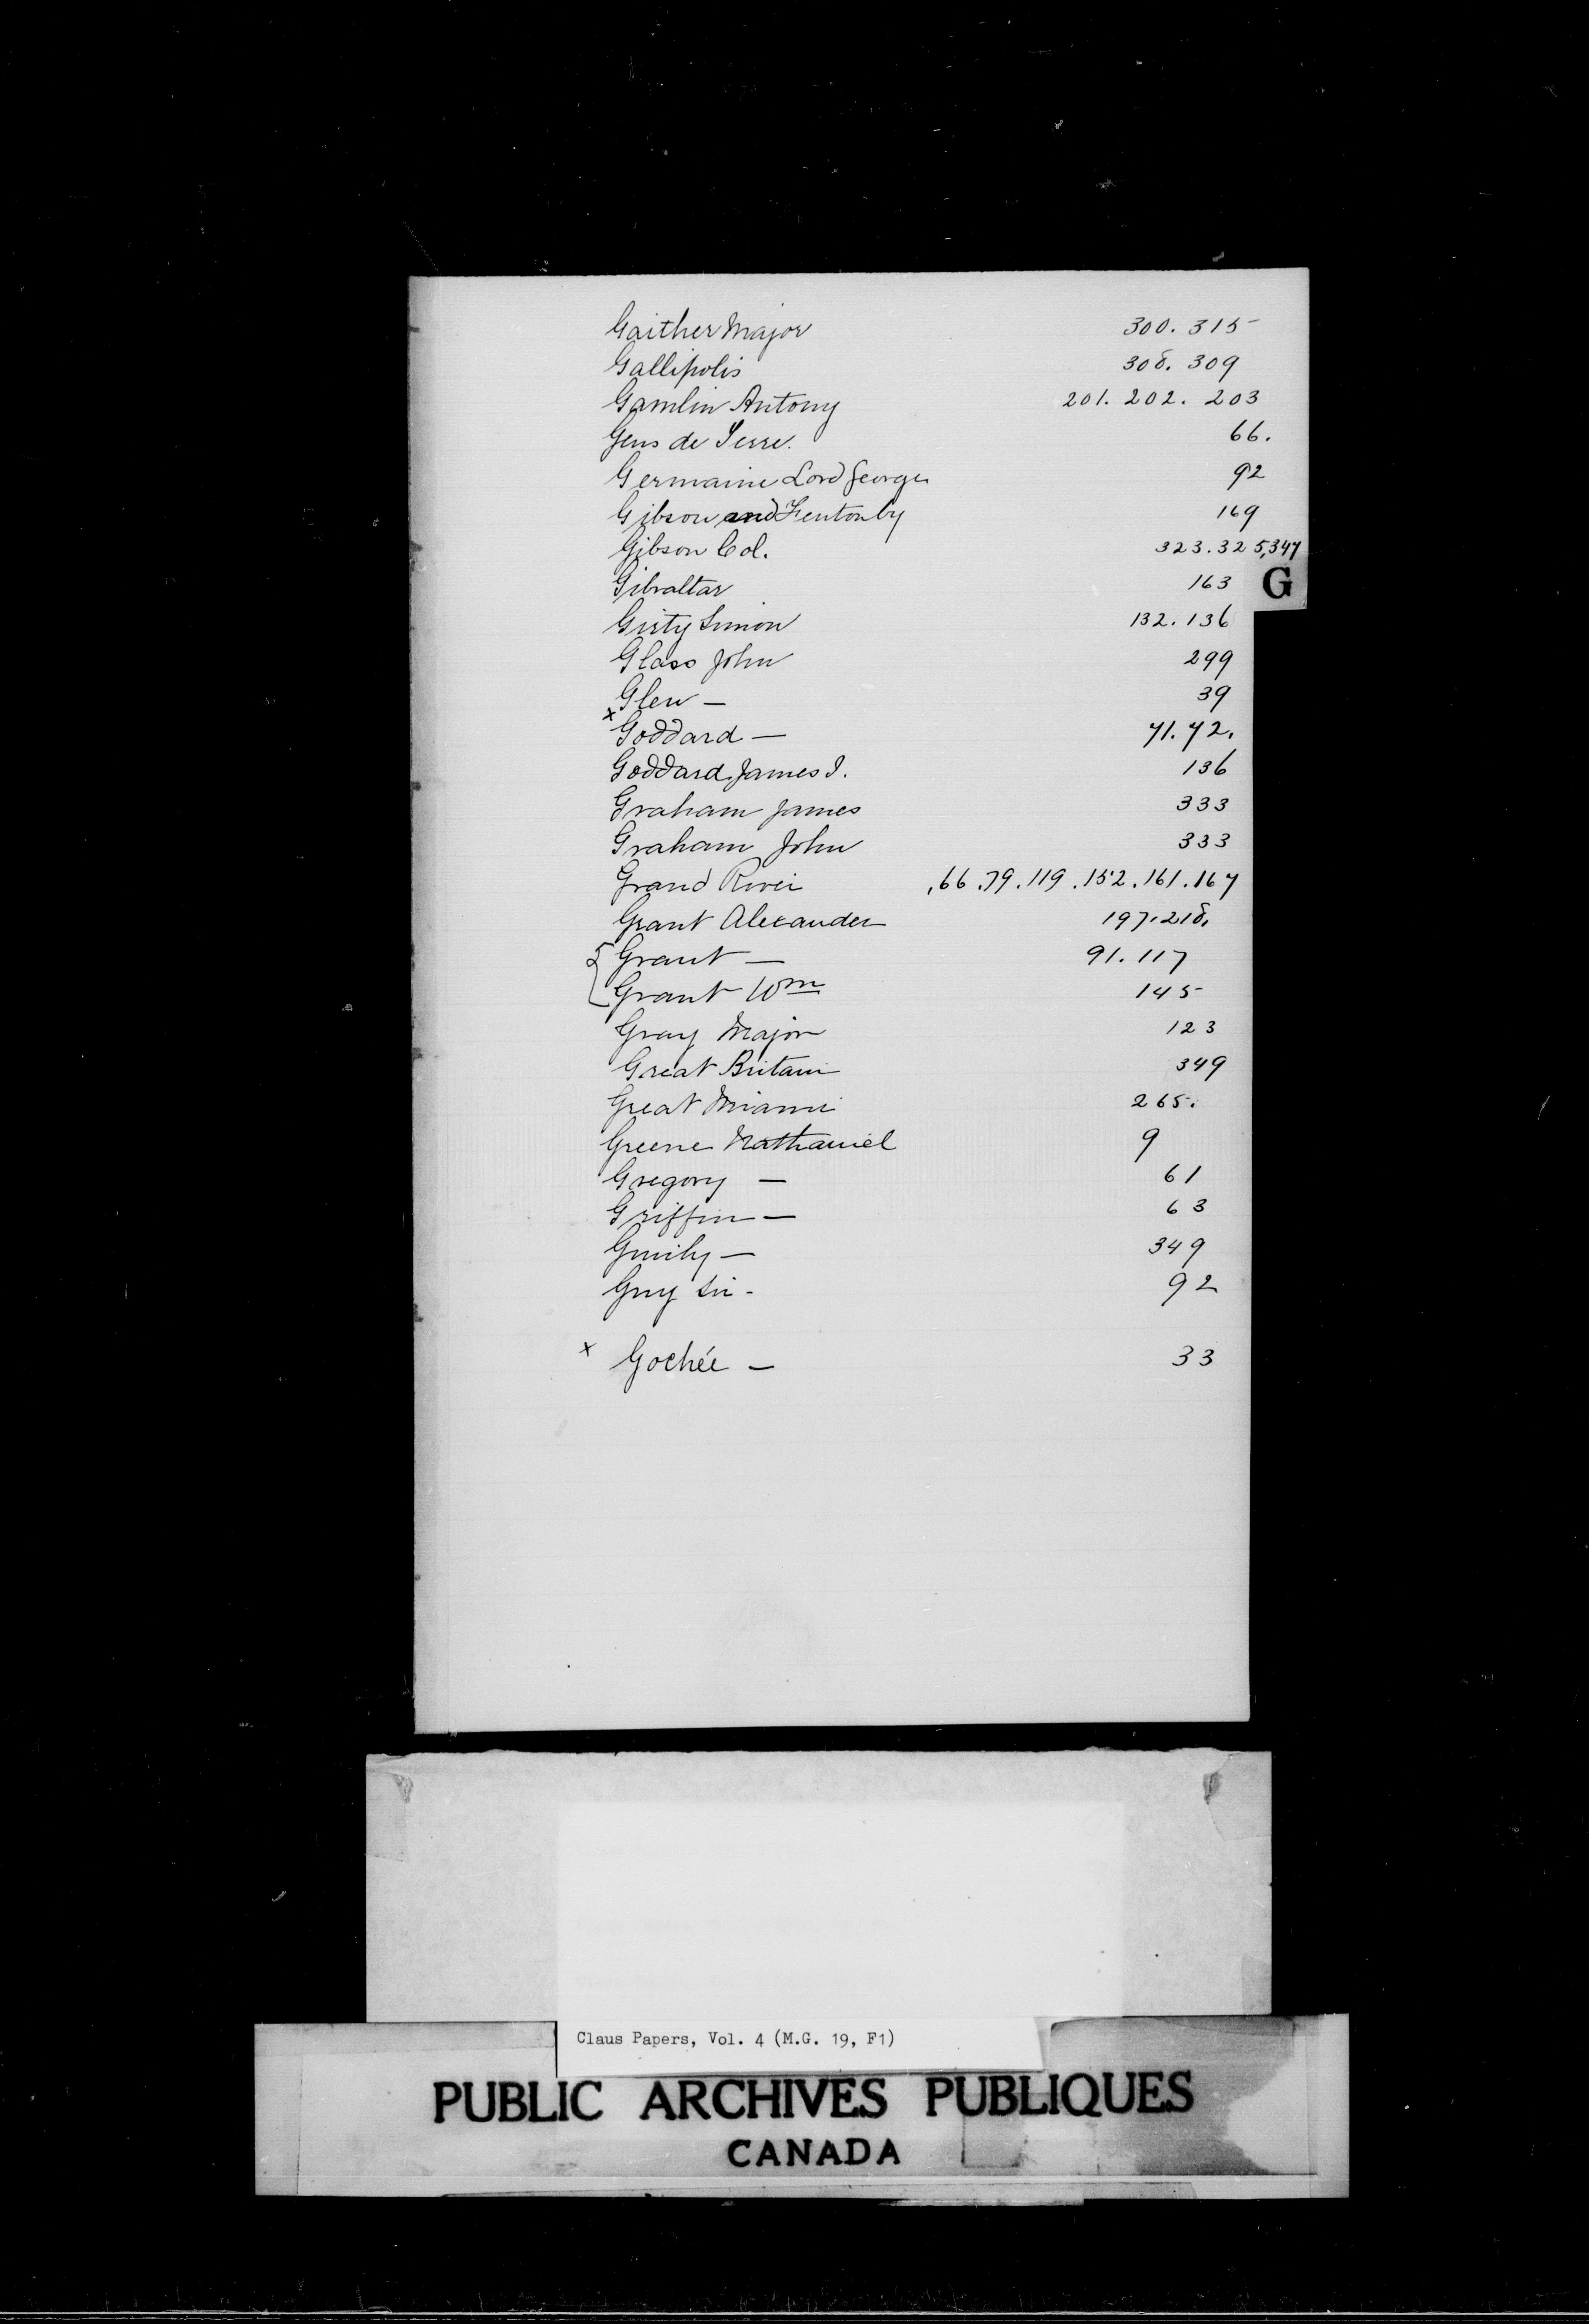 Gaither Major 300. 315
Gallipolis 308. 309
Gamlin Antony 201. 202. 203
Gens de Terre. 66.
Germaine Lord George 92
Gibson and 169
Gibson Col. 323. 325, 347
Gibraltar 163
G
Girty Simon 132. 136
Glass John 299
Glen — 39
x Goddard — 71. 72.
Goddard James I. 136
Graham James 333
Graham John 333
Grand River , 66. 79. 119. 152. 161. 167
Grant Alexander 197. 218.
{ Grant — 91. 117
Grant Wm 145
Gray Major 123
Great Britain 349
Great Miami 265.
Greene Nathaniel 9
Gregory — 61
Griffin — 63
349
Guy Sir - 92
x Gochée — 33
Claus Papers, Vol. 4 (M.G. 19, F1)
PUBLIC ARCHIVES PUBLIQUES
CANADA